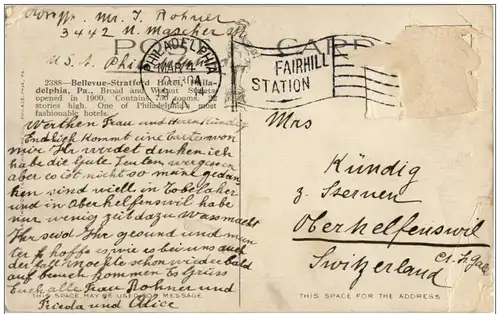 Mr. J. Rohner
3442 N. Mascher St
U.S.A. Philadelphia
POST CARD
PHILADELPHIA
MAR 4
FAIRHILL
STATION
2388—Bellevue-Stratford Hotel, Phila-
delphia, Pa., Broad and Walnut Streets
opened in 1900. Contains 750 rooms.
stories high. One of Philadelphia's most
fashionable hotels.
Werthen Frau und Herr Kündig
Endlich kommt eine carte von
mir Ihr wirdet denken ich
habe die Gute Leuten vergessen
aber es ist nicht so meine gedan-
ken sind viell in Tobel aher
und in Oberhelfenswil habe
nur wenig zeit dazu Wass macht
Ihr seid Ihr gesund und mun-
ter hoffe es wie es bei uns auch
der fall mochte schon wieder bald
auf besuch kommen Es Grüss
Euch alle Frau Rohner und
Frieda und Alice
THIS SPACE MAY BE USED FOR MESSAGE
Mrs
Kündig
z. Sternen
Oberhelfenswil
Ct. St. Gall
Switzerland
THIS SPACE FOR THE ADDRESS